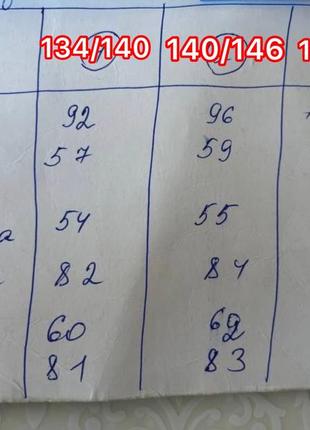 134/140 140/146 1
92 96
57 59
54 55
а
82 84
60 62
81 83